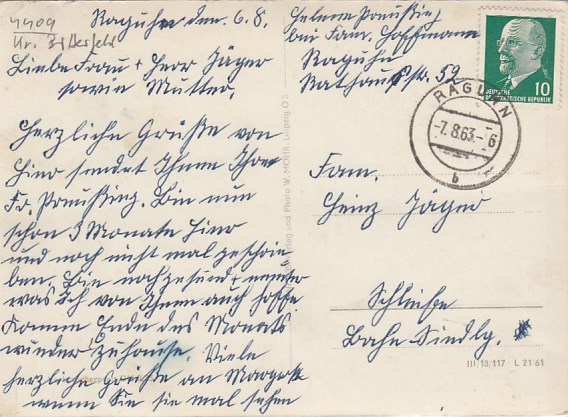 4409
Kr. Bitterfeld
Raguhn den. 6.8.
Liebe Frau + Herr Jäger
sowie Mutter,
Herzliche Grüße von
hier sendet Ihnen Ihre
Fr. Preußing. Bin nun
schon 3 Monate hier
und noch nicht mal geschrie
ben. Bin noch gesund + munter
was ich von Ihnen auch hoffe.
Komme Ende des Monats
wieder zuhause. Viele
herzliche Grüße an Margret
wenn Sie sie mal sehen
Helene Preußing
bei Fam. Hoffmann
Raguhn
Rathausstr. 52
DEUTSCHE
DEMOKRATISCHE REPUBLIK
10
RAGUHN
-7.8.63.-6
b
Fam.
Heinz Jäger
Schleife
Bahn Siedlg.
III/18/117 L 21 61
Verlag und Photo W. MOHR, Leipzig O 5